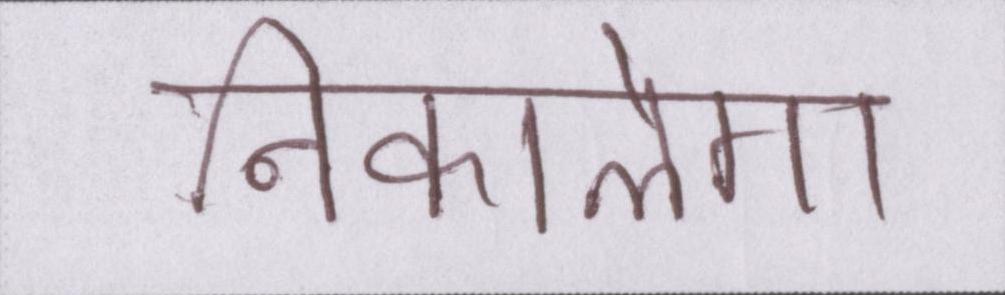 निकालेगा